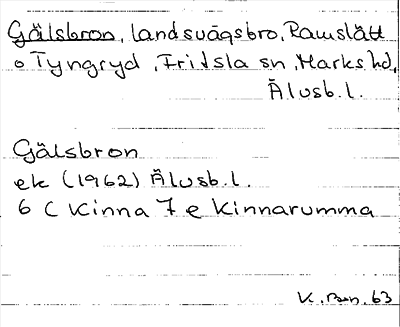 Gälsbron, landsvägsbro, Ramslätt
o Tyngryd, Fritsla sn, Marks hd,
Älvsb. l.
Gälsbron
ek (1962) Älvsb. l.
6 C Kinna 7 e Kinnarumma
K. 63